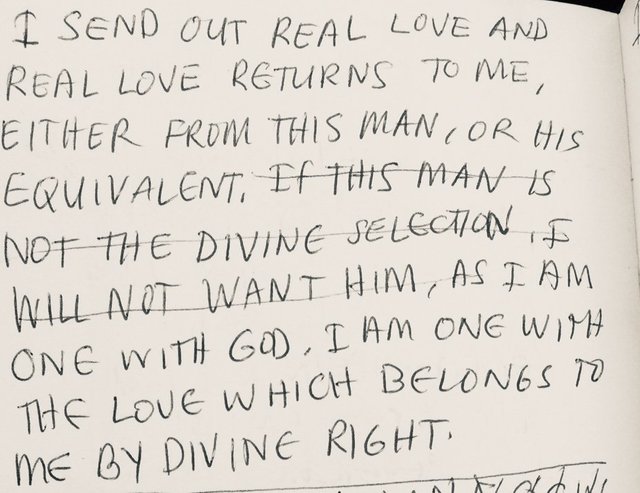 I SEND OUT REAL LOVE AND
REAL LOVE RETURNS TO ME,
EITHER FROM THIS MAN, OR HIS
EQUIVALENT. If THIS MAN IS
NOT THE DIVINE SELECTION, I
WILL NOT WANT HIM, AS I AM
ONE WITH GOD, I AM ONE WITH
THE LOVE WHICH BELONGS TO
ME BY DIVINE RIGHT.